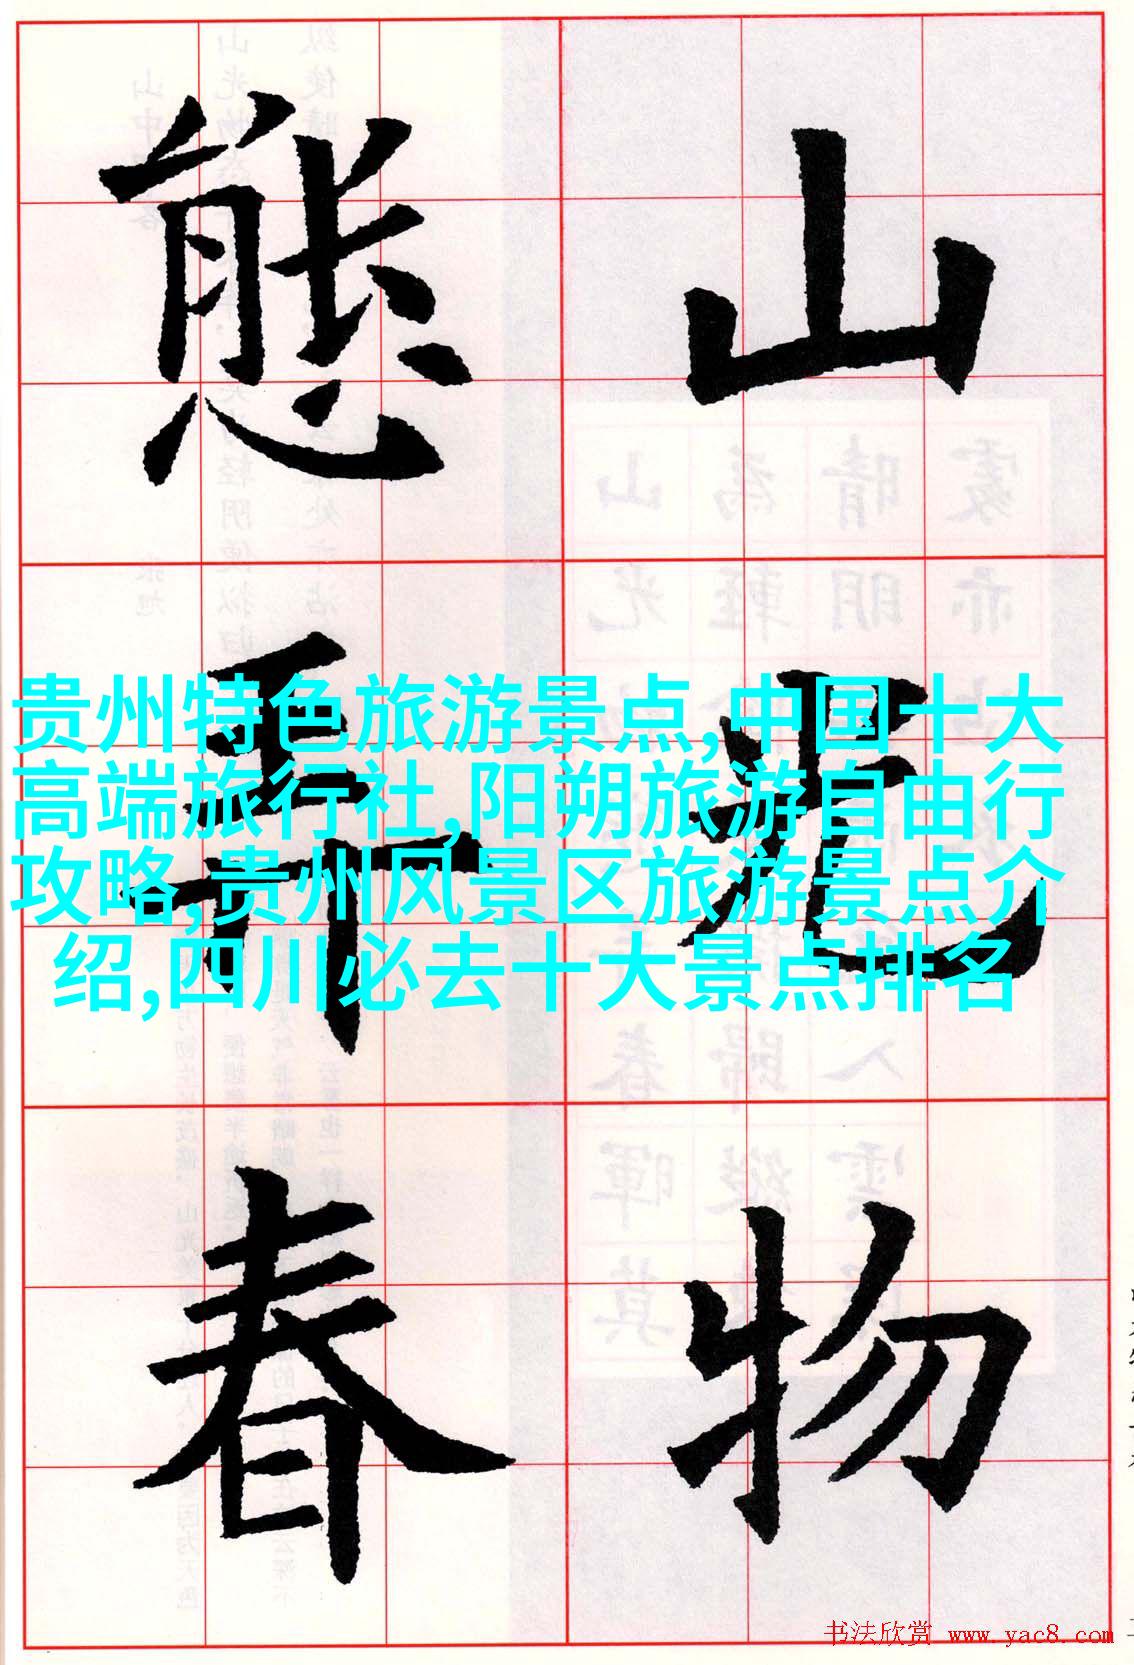 山光物
態弄春
贵州特色旅游景点,中国十大
高端旅行社,阳朔旅游自由行
攻略,贵州风景区旅游景点介
绍,四川必去十大景点排名
书法欣赏 www.yac8.com